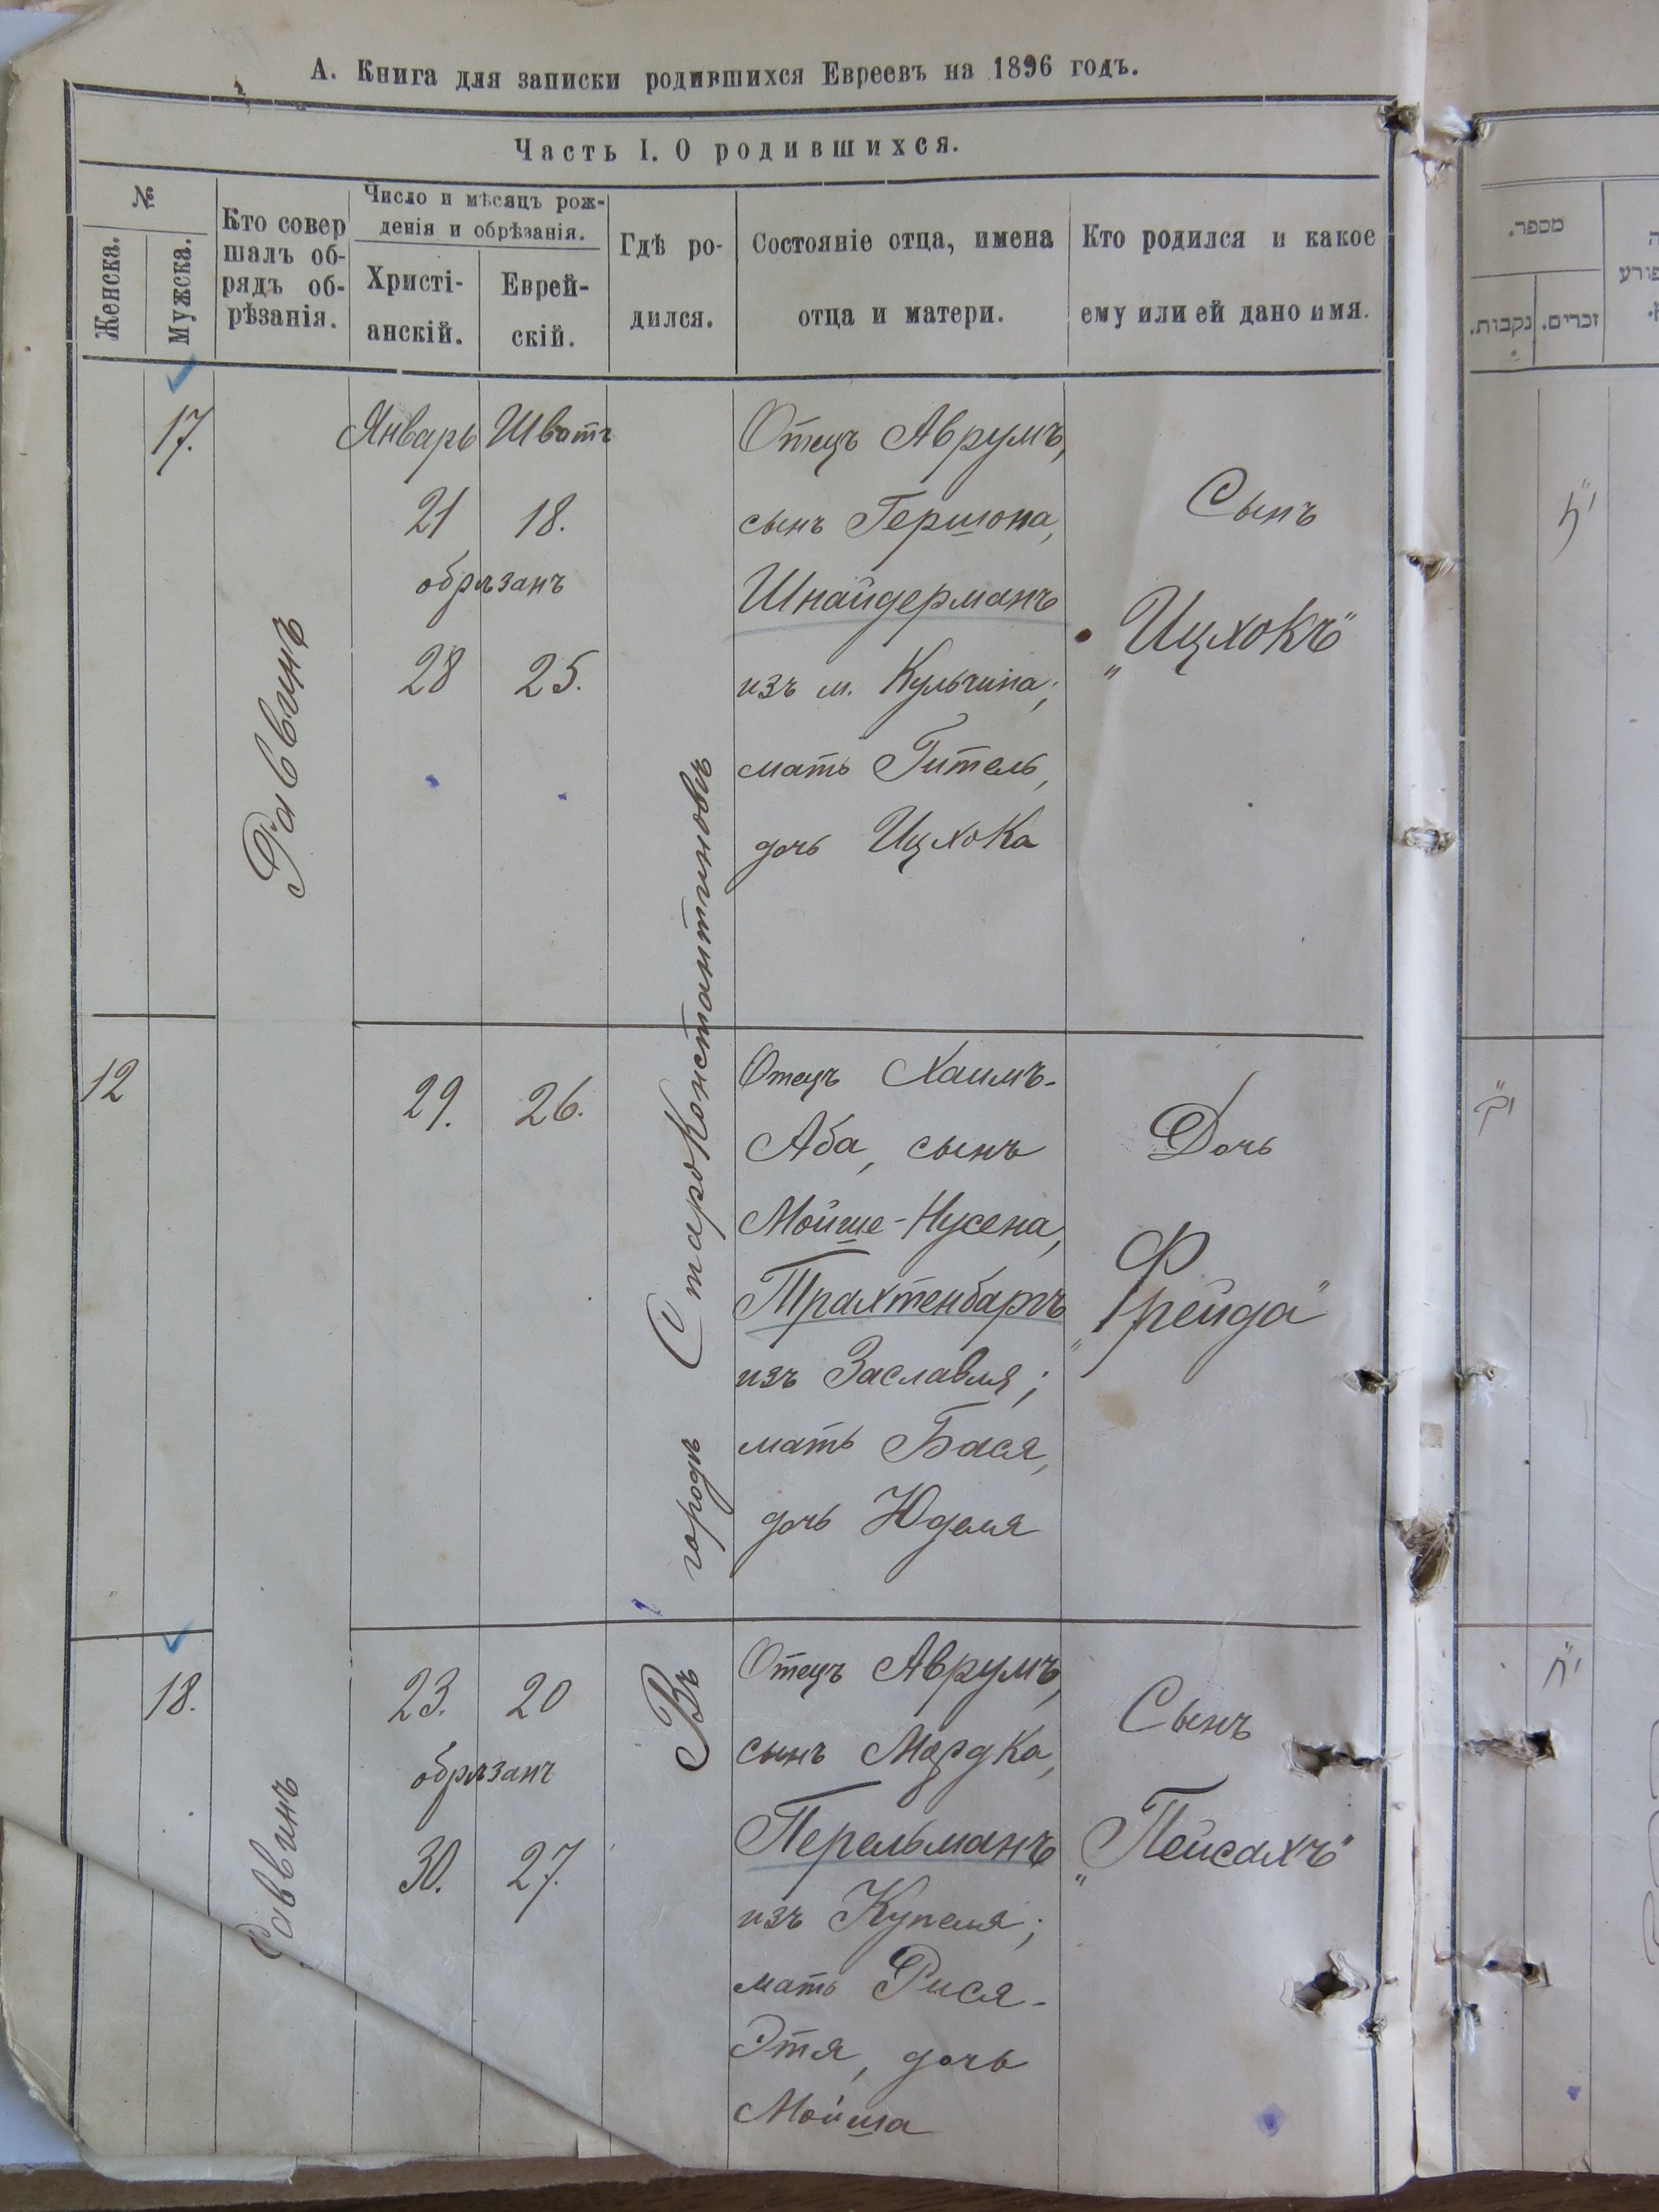 А. Книга для записки родившихся Евреевъ на 1896 годъ.
Часть I. О родившихся.
№
Женска.
Мужска.
Кто совер
шалъ об-
рядъ об-
рѣзанія.
Число и мѣсяцъ рож-
денія и обрѣзанія.
Христі-
анскій.
Еврей-
скій.
Гдѣ ро-
дился.
Состояніе отца, имена
отца и матери.
Кто родился и какое
ему или ей дано имя.
מספר.
נקבות.
זכרים.
17.
Раввинъ
Январь Шватъ
21 18.
обрѣзанъ
28 25.
Въ городѣ СтароКонстантиновѣ
Отецъ Аврумъ,
сынъ Гершона,
Шнайдерманъ
изъ м. Кульчина;
мать Гитель,
дочь Ицхока
Сынъ
„Ицхокъ"
12
29. 26.
Отецъ Хаимъ-
Аба, сынъ
Мойше-Нусена,
Трахтенбаргъ
изъ Заславля;
мать Бася,
дочь Юделя
Дочь
„Фрейда"
י"ב
18.
Раввинъ
23. 20
обрѣзанъ
30. 27.
Отецъ Аврумъ,
сынъ Мордка,
Перельманъ
изъ Купеля;
мать Рися-
Этя, дочь
Мойша
Сынъ
„Пейсахъ"
י"ח